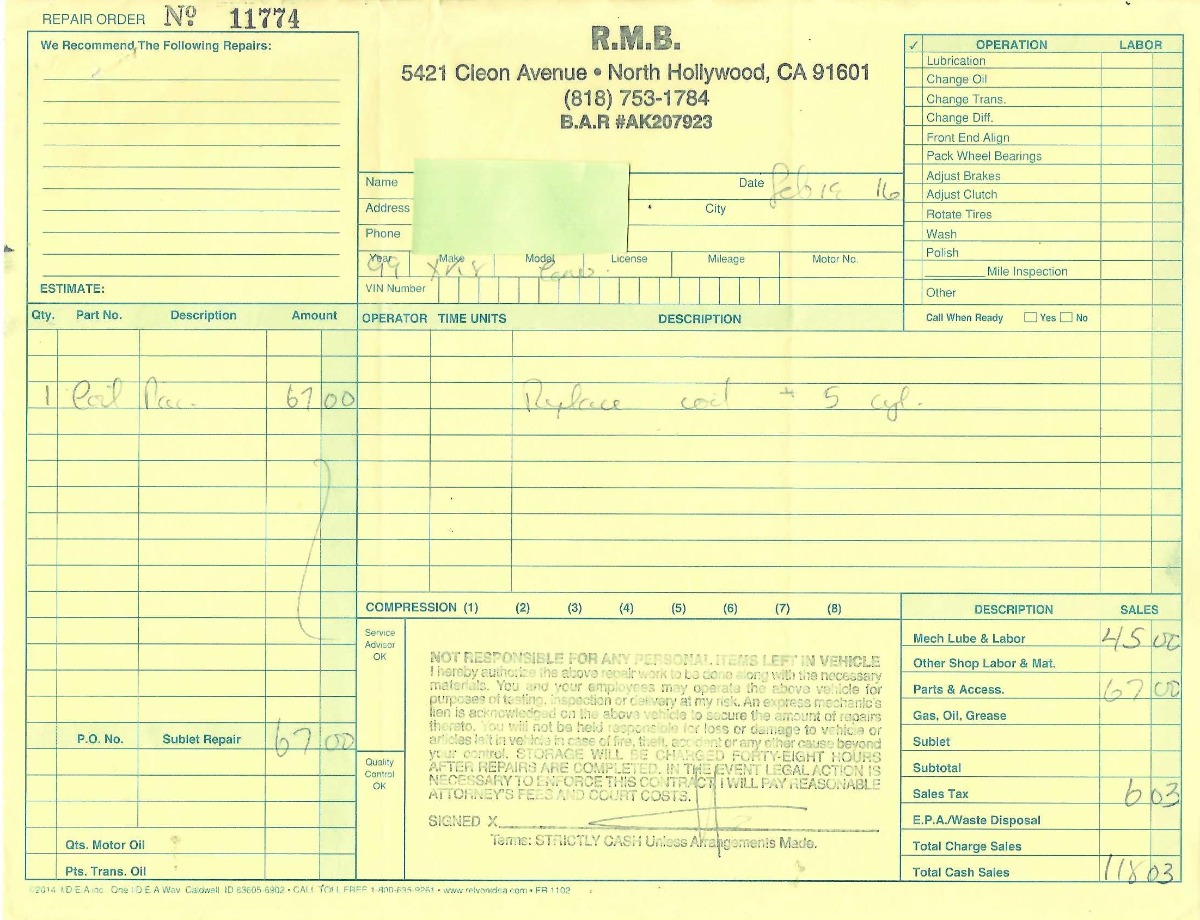 REPAIR ORDER Nº 11774
We Recommend The Following Repairs:
ESTIMATE:
R.M.B.
5421 Cleon Avenue • North Hollywood, CA 91601
(818) 753-1784
B.A.R #AK207923
Name
Date Feb 19 16
Address
City
Phone
Year Make Model License Mileage Motor No.
99
VIN Number
✓ OPERATION LABOR
Lubrication
Change Oil
Change Trans.
Change Diff.
Front End Align
Pack Wheel Bearings
Adjust Brakes
Adjust Clutch
Rotate Tires
Wash
Polish
Mile Inspection
Other
Call When Ready Yes No
Qty. Part No. Description Amount
OPERATOR TIME UNITS DESCRIPTION
1 Coil Pac. 67 00
Replace coil # 5 cyl.
P.O. No. Sublet Repair 67 00
Qts. Motor Oil
Pts. Trans. Oil
COMPRESSION (1) (2) (3) (4) (5) (6) (7) (8)
Service
Advisor
OK
Quality
Control
OK
NOT RESPONSIBLE FOR ANY PERSONAL ITEMS LEFT IN VEHICLE
I hereby authorize the above repair work to be done along with the necessary
materials. You and your employees may operate the above vehicle for
purposes of testing, inspection or delivery at my risk. An express mechanic's
lien is acknowledged on the above vehicle to secure the amount of repairs
thereto. You will not be held responsible for loss or damage to vehicle or
articles left in vehicle in case of fire, theft, accident or any other cause beyond
your control. STORAGE WILL BE CHARGED FORTY-EIGHT HOURS
AFTER REPAIRS ARE COMPLETED. IN THE EVENT LEGAL ACTION IS
NECESSARY TO ENFORCE THIS CONTRACT I WILL PAY REASONABLE
ATTORNEY'S FEES AND COURT COSTS.
SIGNED X
Terms: STRICTLY CASH Unless Arrangements Made.
DESCRIPTION SALES
Mech Lube & Labor 45 00
Other Shop Labor & Mat.
Parts & Access. 67 00
Gas, Oil, Grease
Sublet
Subtotal
Sales Tax 6 03
E.P.A./Waste Disposal
Total Charge Sales
Total Cash Sales 118 03
©2014 I.D.E.A Inc. One I D E A Way Caldwell, ID 83605-6902 • CALL TOLL FREE 1-800-635-9261 • www.relyonidea.com • ER 1102